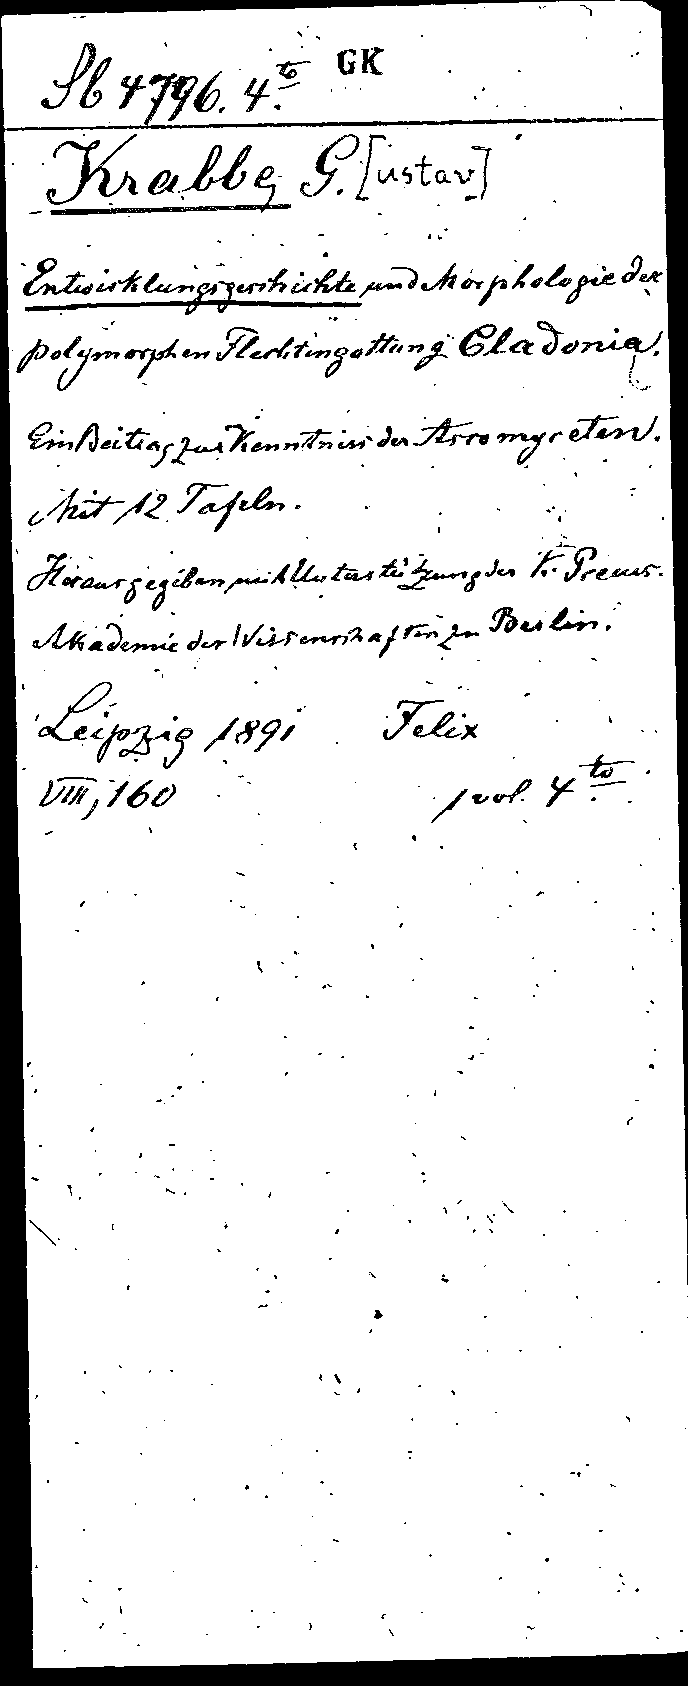 Sb 4796. 4.to GK
Krabbe, G.[ustav]
Entwicklungsgeschichte und Morphologie der
polymorphen Flechtengattung Cladonia.
Ein Beitrag zur Kenntniss der Ascomyceten.
Mit 12 Tafeln.
Herausgegeben mit Unterstützung der K. Preuss.
Akademie der Wissenschaften zu Berlin.
Leipzig 1891 Felix
VIII, 160 1 vol. 4to